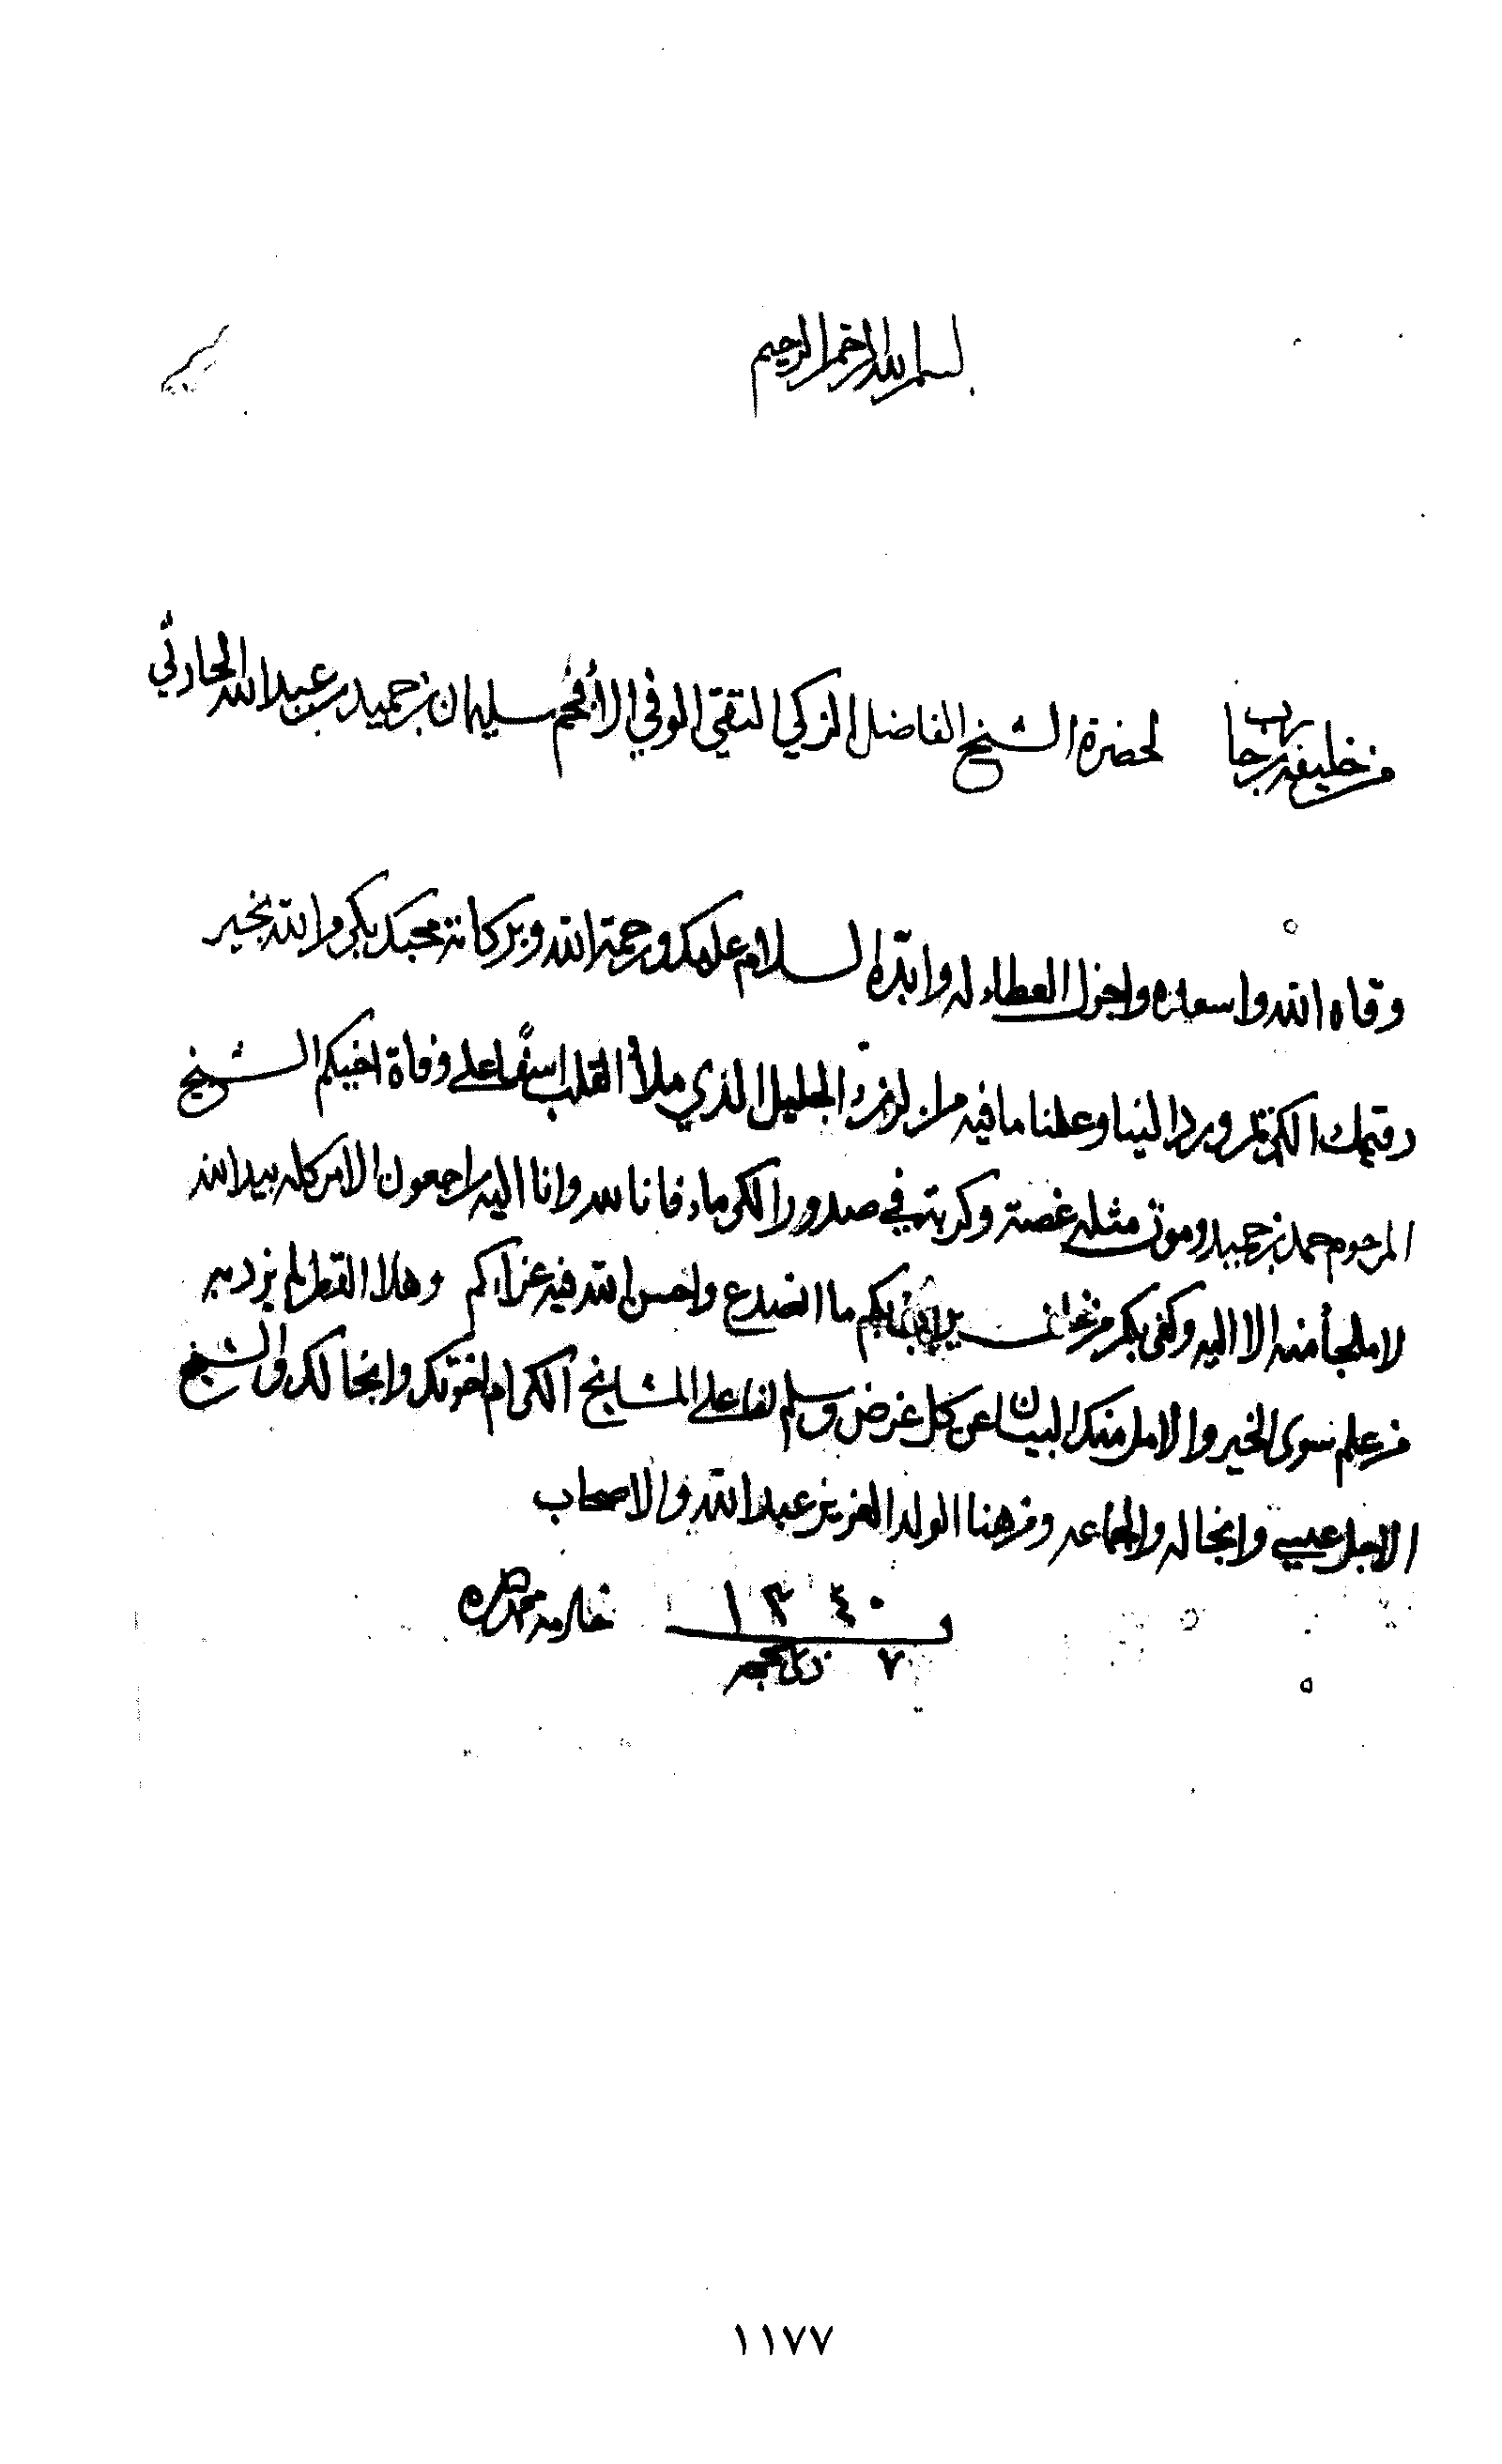 بسم الله الرحمن الرحيم
من خليفه برجا لحضرة الشيخ الفاضل الزكي التقي الوفي الأفخم سليمان بن حميد بن عبدالله الحارثي
وقاه الله واسعده واجزل العطاء له وابتداه السلام عليك ورحمة الله وبركاته محبك بكم والله بخير
رقيمك الكريم ورد الينا وعلمنا ما فيه من الرزء الجليل الذي ملأ القلب اسفًا على وفاة اخيكم الشيخ
المرحوم حمد بن حميد وموت مثله غصة وكربة في صدور الكرماء فانا لله وانا اليه راجعون الامر كله بيد الله
لا ملجأ منه الا اليه وكفى بكم من ما انصدع واحسن الله فيه عزاءكم وهذا القطر لم نزد به
من علم سوى الخير والامل منك البيان عن كل غرض وسلم لنا على المشايخ الكرام اخوتك وانجالك والشيخ
الاجل عيسى وانجاله والجماعه ومن هنا الولد العزيز عبدالله والاصحاب
١٣٤٠ خادمه محمد
٧ ذي الحجه
١١٧٧